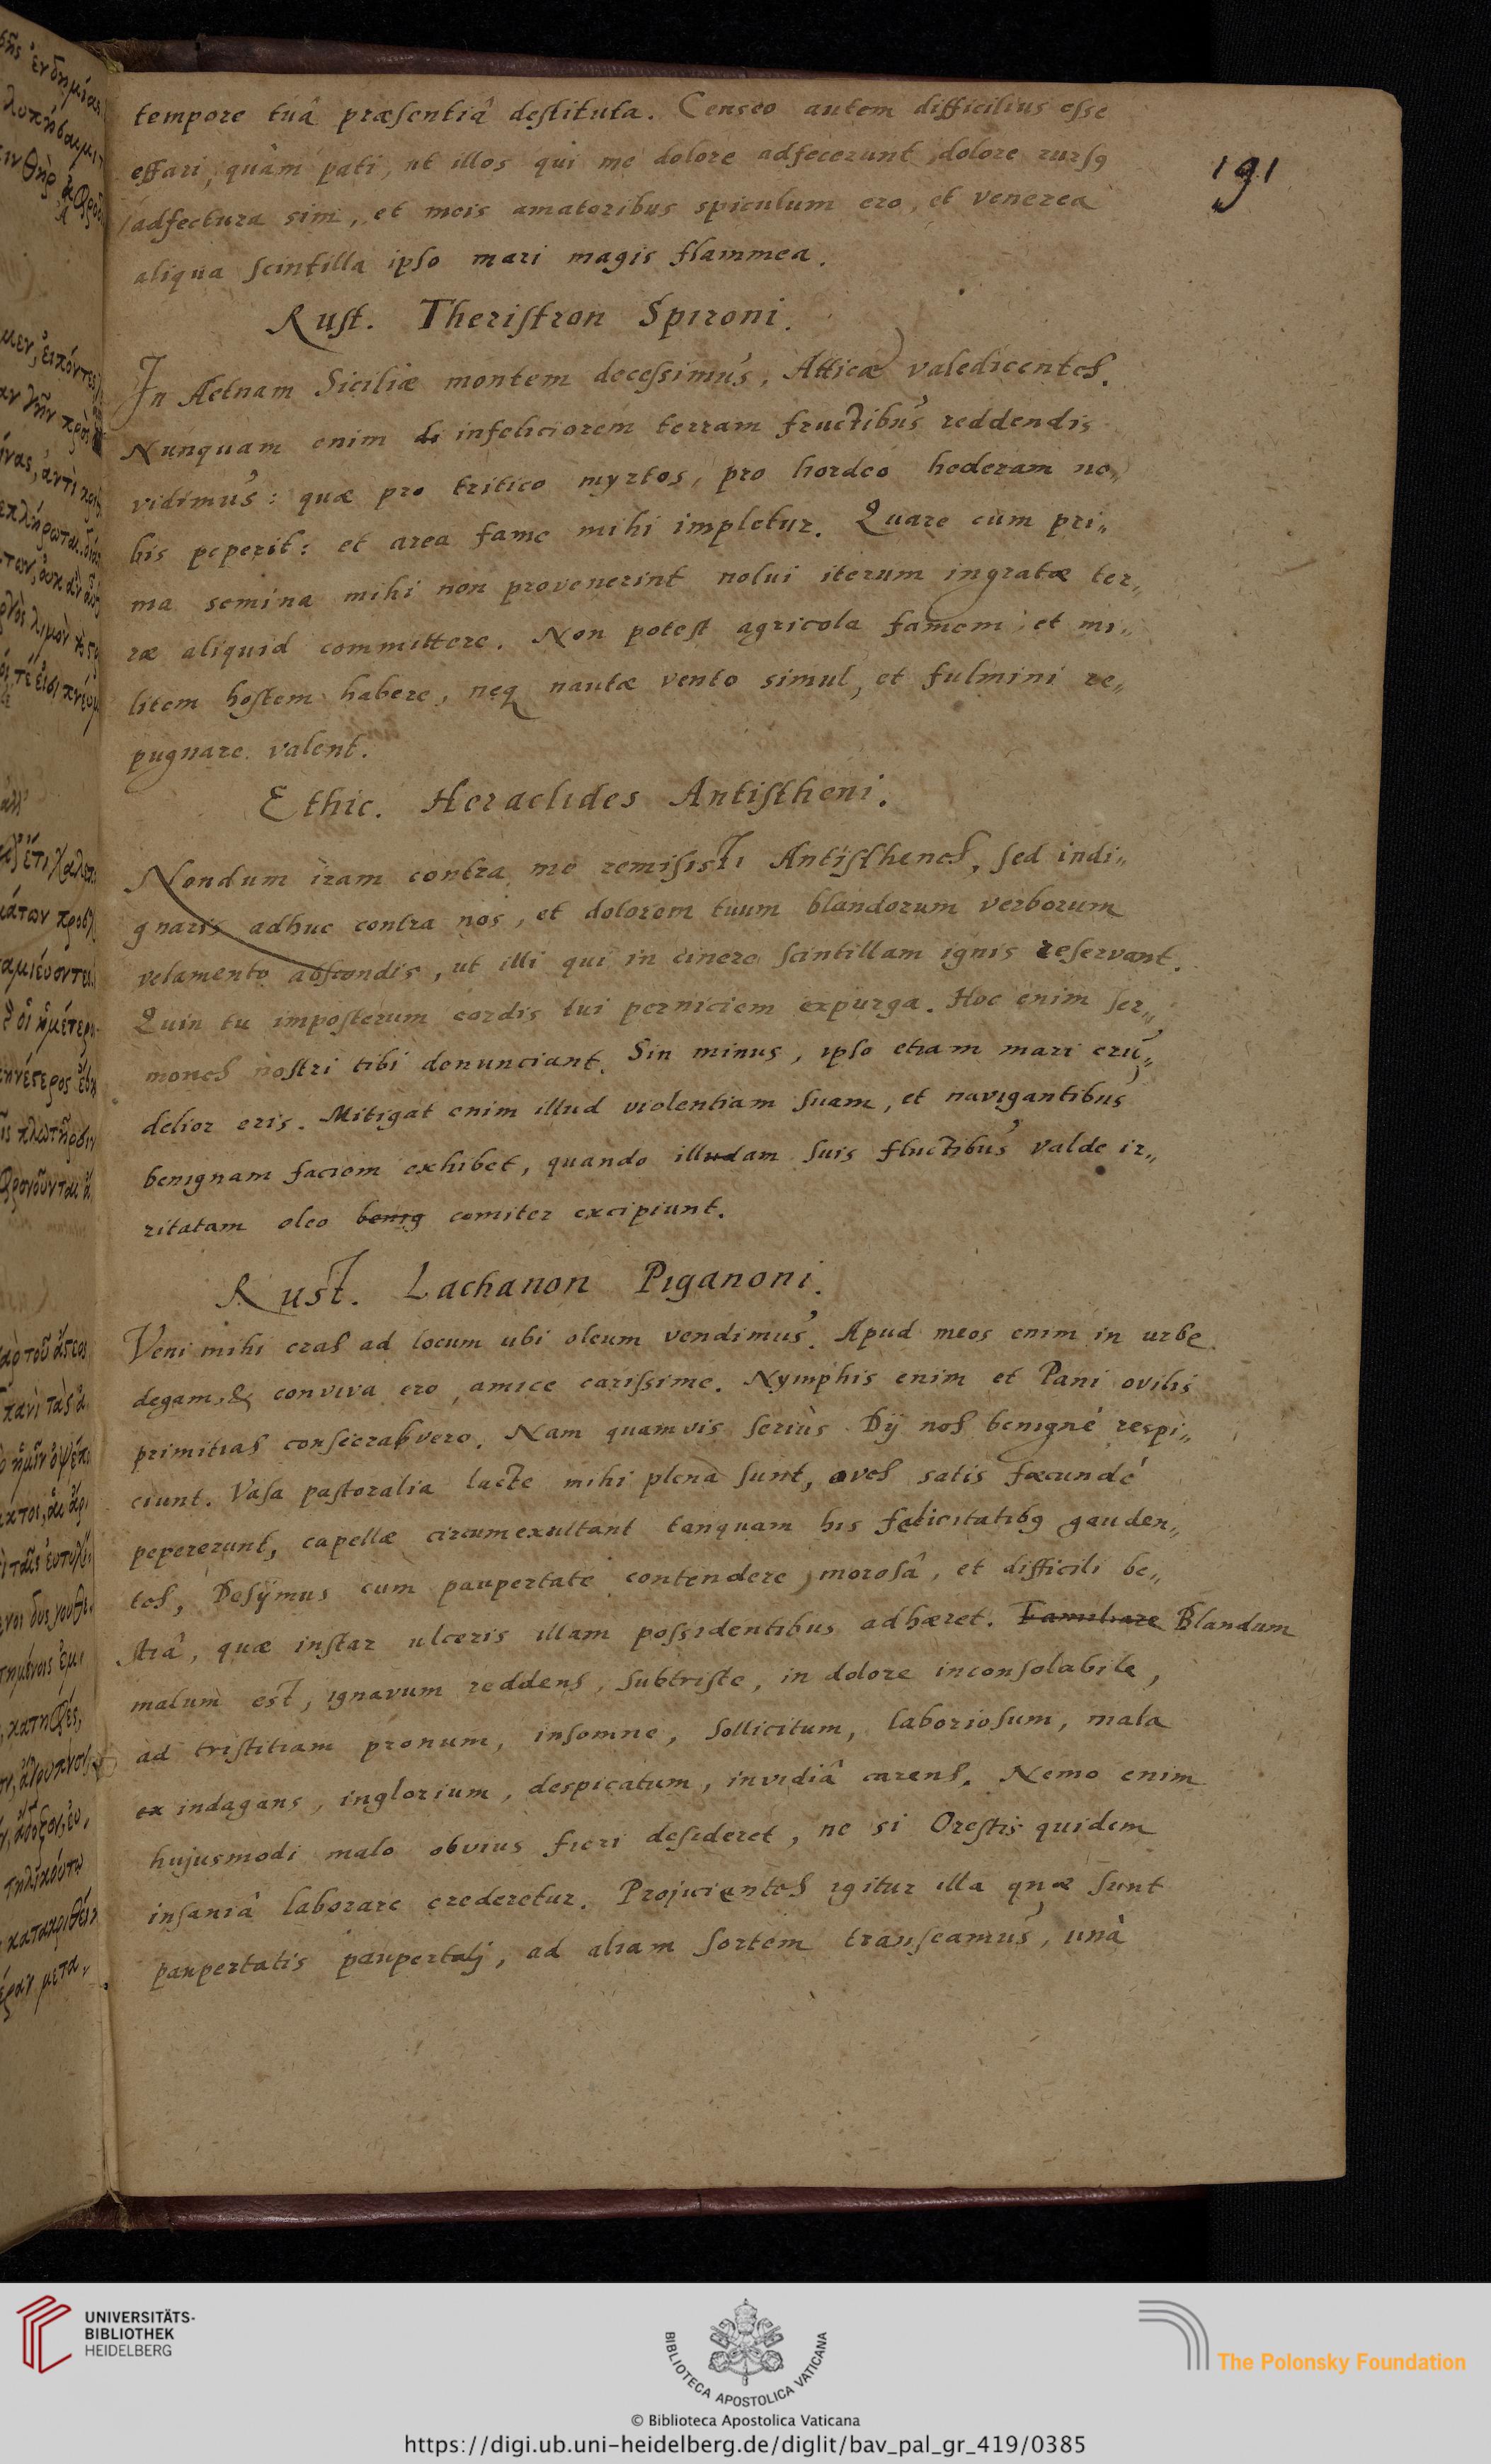 tempore tuâ præsentiâ destituta. Censeo autem difficilius esse
effari, quàm pati, ut illos qui me dolore adfecerunt dolore rursq
adfectura sim, et meis amatoribus spiculum ero, et venerea
aliqua scintilla ipso mari magis flammea.
191
Rust. Theristron Spironi.
In Aetnam Siciliæ montem decessimus, Atticæ valedicentes.
Nunquam enim di infeliciorem terram fructibus reddendis
vidimus: quæ pro tritico myrtos, pro hordeo hederam no„
bis peperit: et area fame mihi impletur. Quare cùm pri„
ma semina mihi non provenerint nolui iterum ingratæ ter„
ræ aliquid committere. Non potest agricola famem, et mi„
litem hostem habere, neq nautæ vento simul, et fulmini re„
pugnare valent.
Ethic. Heraclides Antistheni.
Nondum iram contra me remisisti Antisthenes, sed indi„
gnaris adhuc contra nos, et dolorem tuum blandorum verborum
velamento abscondis, ut illi qui in cinere scintillam ignis reservant.
Quin tu imposterum cordis tui perniciem expurga. Hoc enim ser„
mones nostri tibi denunciant. Sin minus, ipso etiam mari cru„
delior eris. Mitigat enim illud violentiam suam, et navigantibus
benignam faciem exhibet, quando illudam suis fluctibus valde ir„
ritatam oleo benig comiter excipiunt.
Rust. Lachanon Piganoni.
Veni mihi cras ad locum ubi oleum vendimus. Apud meos enim in urbe
degam, & conviva ero, amice carissime. Nymphis enim et Pani ovilis
primitias consecravero. Nam quamvis seriùs Dij nos benignè respi„
ciunt. Vasa pastoralia lacte mihi plena sunt, oves satis fæcundé
pepererunt, capellæ circumexultant tanquam his felicitatibq gauden„
tes, Desijmus cum paupertate contendere, morosâ, et difficili be„
stiâ, quæ instar ulceris illam possidentibus adhæret. Familiare Blandum
malum est, ignavum reddens, subtriste, in dolore inconsolabile,
ad tristitiam pronum, insomne, sollicitum, laboriosum, mala
ex indagans, inglorium, despicatum, invidiâ carens. Nemo enim
hujusmodi malo obvius fieri desideret, ne si Orestis quidem
insaniâ laborare crederetur. Projicientes igitur illa quæ sunt
paupertatis paupertatj, ad aliam sortem transeamus, unà
UNIVERSITÄTS-
BIBLIOTHEK
HEIDELBERG
BIBLIOTECA APOSTOLICA VATICANA
The Polonsky Foundation
© Biblioteca Apostolica Vaticana
https://digi.ub.uni-heidelberg.de/diglit/bav_pal_gr_419/0385